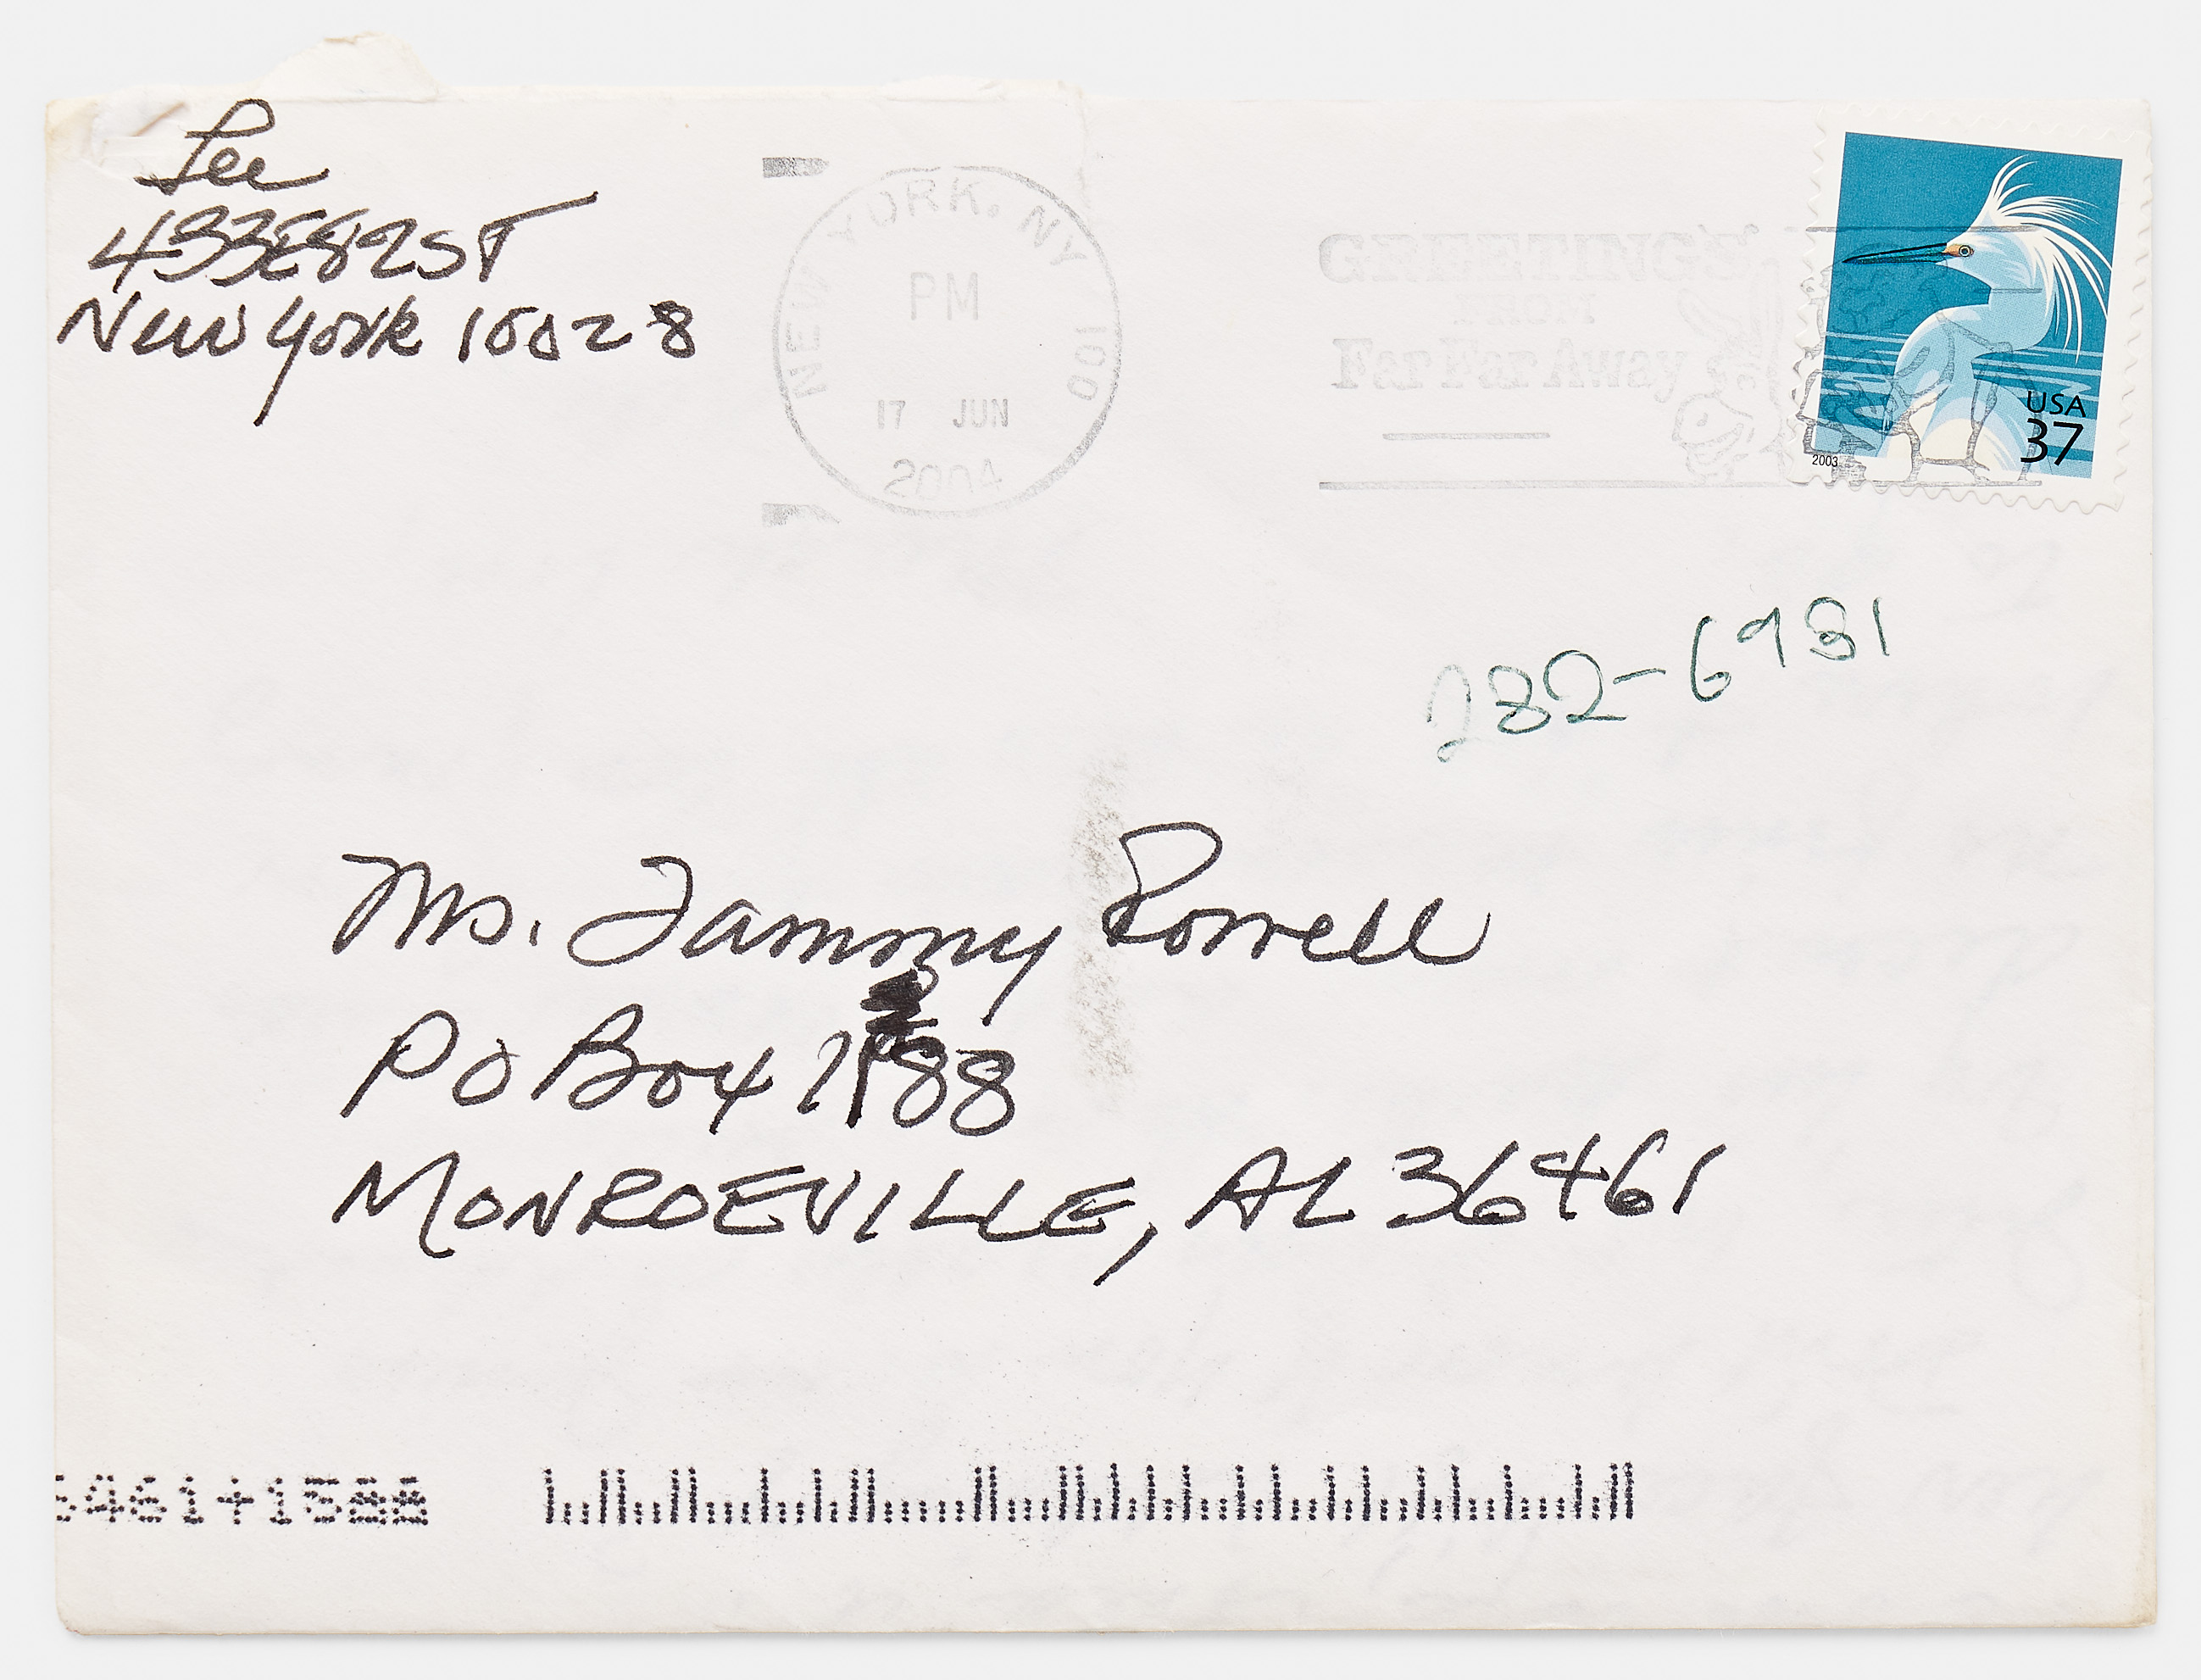 Lee
433E82ST
New York 10028
NEW YORK, NY 100
PM
17 JUN
2004
GREETINGS
FROM
Far Far Away
USA
37
2003
282-6931
Ms. Tammy Rowell
PO Box 1588
MONROEVILLE, AL 36461
6461+1588